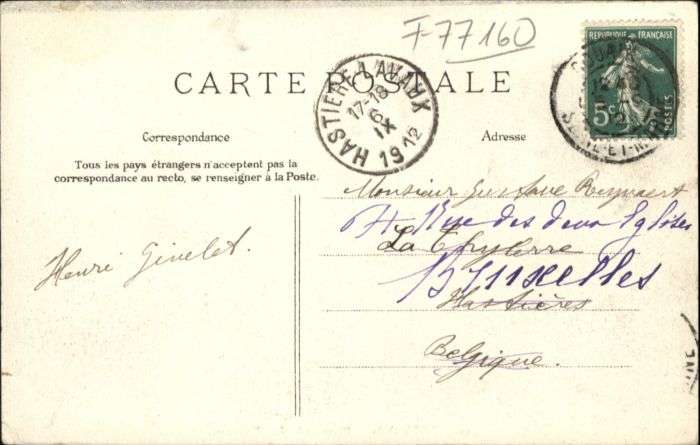 F-77160
CARTE POSTALE
HASTIERE LAVAUX
17-18
6
IX
1912
REPUBLIQUE FRANÇAISE
5c
POSTES
SEINE-ET-MARNE
Correspondance
Adresse
Tous les pays étrangers n'acceptent pas la
correspondance au recto, se renseigner à la Poste.
Monsieur Gustave
Rue des deux Eglises
La
Bruxelles
Hastières
Belgique.
Henri Ginelet.